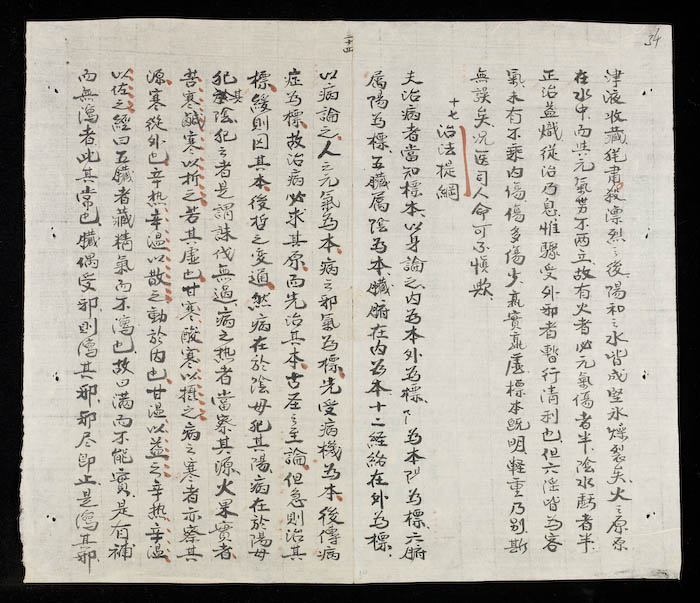 34
二十四
津液收藏繼肅殺凜烈之後陽和之水皆成堅氷爍裂矣火之原原
在水中而與元氣势不兩立故有火者必元氣傷者半陰水虧者半
正治益熾從治乃息惟驟受外邪者暫行清利也但六淫皆為客
氣未有不乘內傷傷多傷少真實真虛標本既明軽重乃别斯
無誤矣况医司人命可不慎歟
十七 治法提綱
夫治病者當知標本以身論之內為本外為標阴為本阳為標六腑
属陽為標五臟属陰為本臟腑在内為本十二経絡在外為標
以病論之人之元氣為本病之邪氣為標先受病機為本後傳病
症為標故治病必求其原而先治其本古至之至論但急則治其
標緩則因其本後哲之变通然病在於陰毋犯其陽病在於陽毋
犯其陰犯之者是謂誅伐無過病之热者當察其源火果實者
苦寒鹹寒以折之若其虛也甘寒酸寒以攝之病之寒者亦察其
源寒從外也辛热辛温以散之動於內也甘温以益之辛热辛温
以佐之経曰五臟者藏精氣而不瀉也故曰满而不能實是有補
而無瀉者此其常也臟偶受邪則瀉其邪邪尽即止是瀉其邪